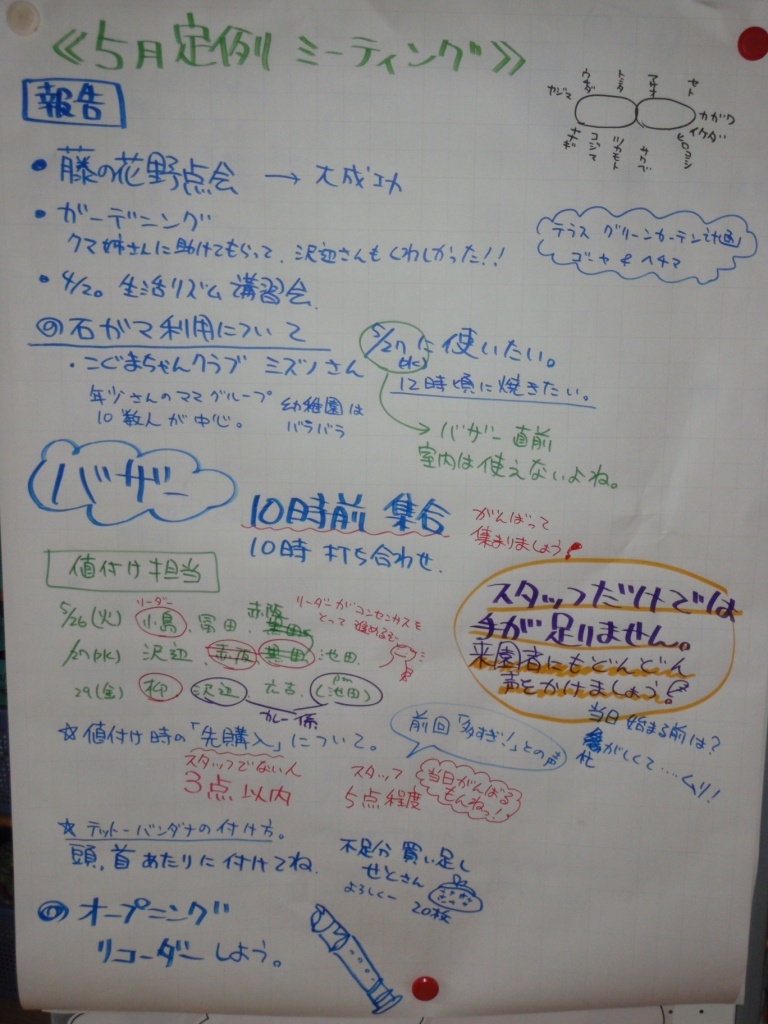 ≪5月定例 ミーティング≫
ウチダ トミタ アカオ セト
カジマ カガワ
ナギ コジマ ツカモト サワベ イケダ
報告
・藤の花野点会 → 大成功
・ガーデニング
クマ姉さんに助けてもらって、沢辺さんもくわしかった!!
テラス グリーンカーテン計画
ゴーヤ & ヘチマ
・4/20 生活リズム講習会
◎石ガマ利用について
・こぐまちゃんクラブ ミズノさん
5/27(水)に使いたい。
12時頃に焼きたい。
年少さんのママグループ 幼稚園は
10数人が中心。 バラバラ
→ バザー直前
室内は使えないよね。
バザー
10時前 集合
10時 打ち合わせ.
がんばって
集まりましょう!
値付け担当
リーダー
5/26(火) 小島、冨田、赤阪
リーダーがコンセンサスを
とって進めるむ
/27(水) 沢辺、池田、
29(金) 柳 沢辺 (池田)
pm
カレー係
スタッフだけでは
手が足りません。
来園者にもどんどん
声をかけましょう!
☆値付け時の「先購入」について。
前回「多すぎ!」との声
当日始まる前は?
忙がしくて…ムリ!
スタッフでない人
3点以内
スタッフ
5点程度
当日がんばる
もんねっ!
☆テットーバンダナの付け方。
頭、首あたりに付けてね.
不足分 買い足し
せとさん
よろしくー 20枚
◎オープニング
リコーダーしよう。